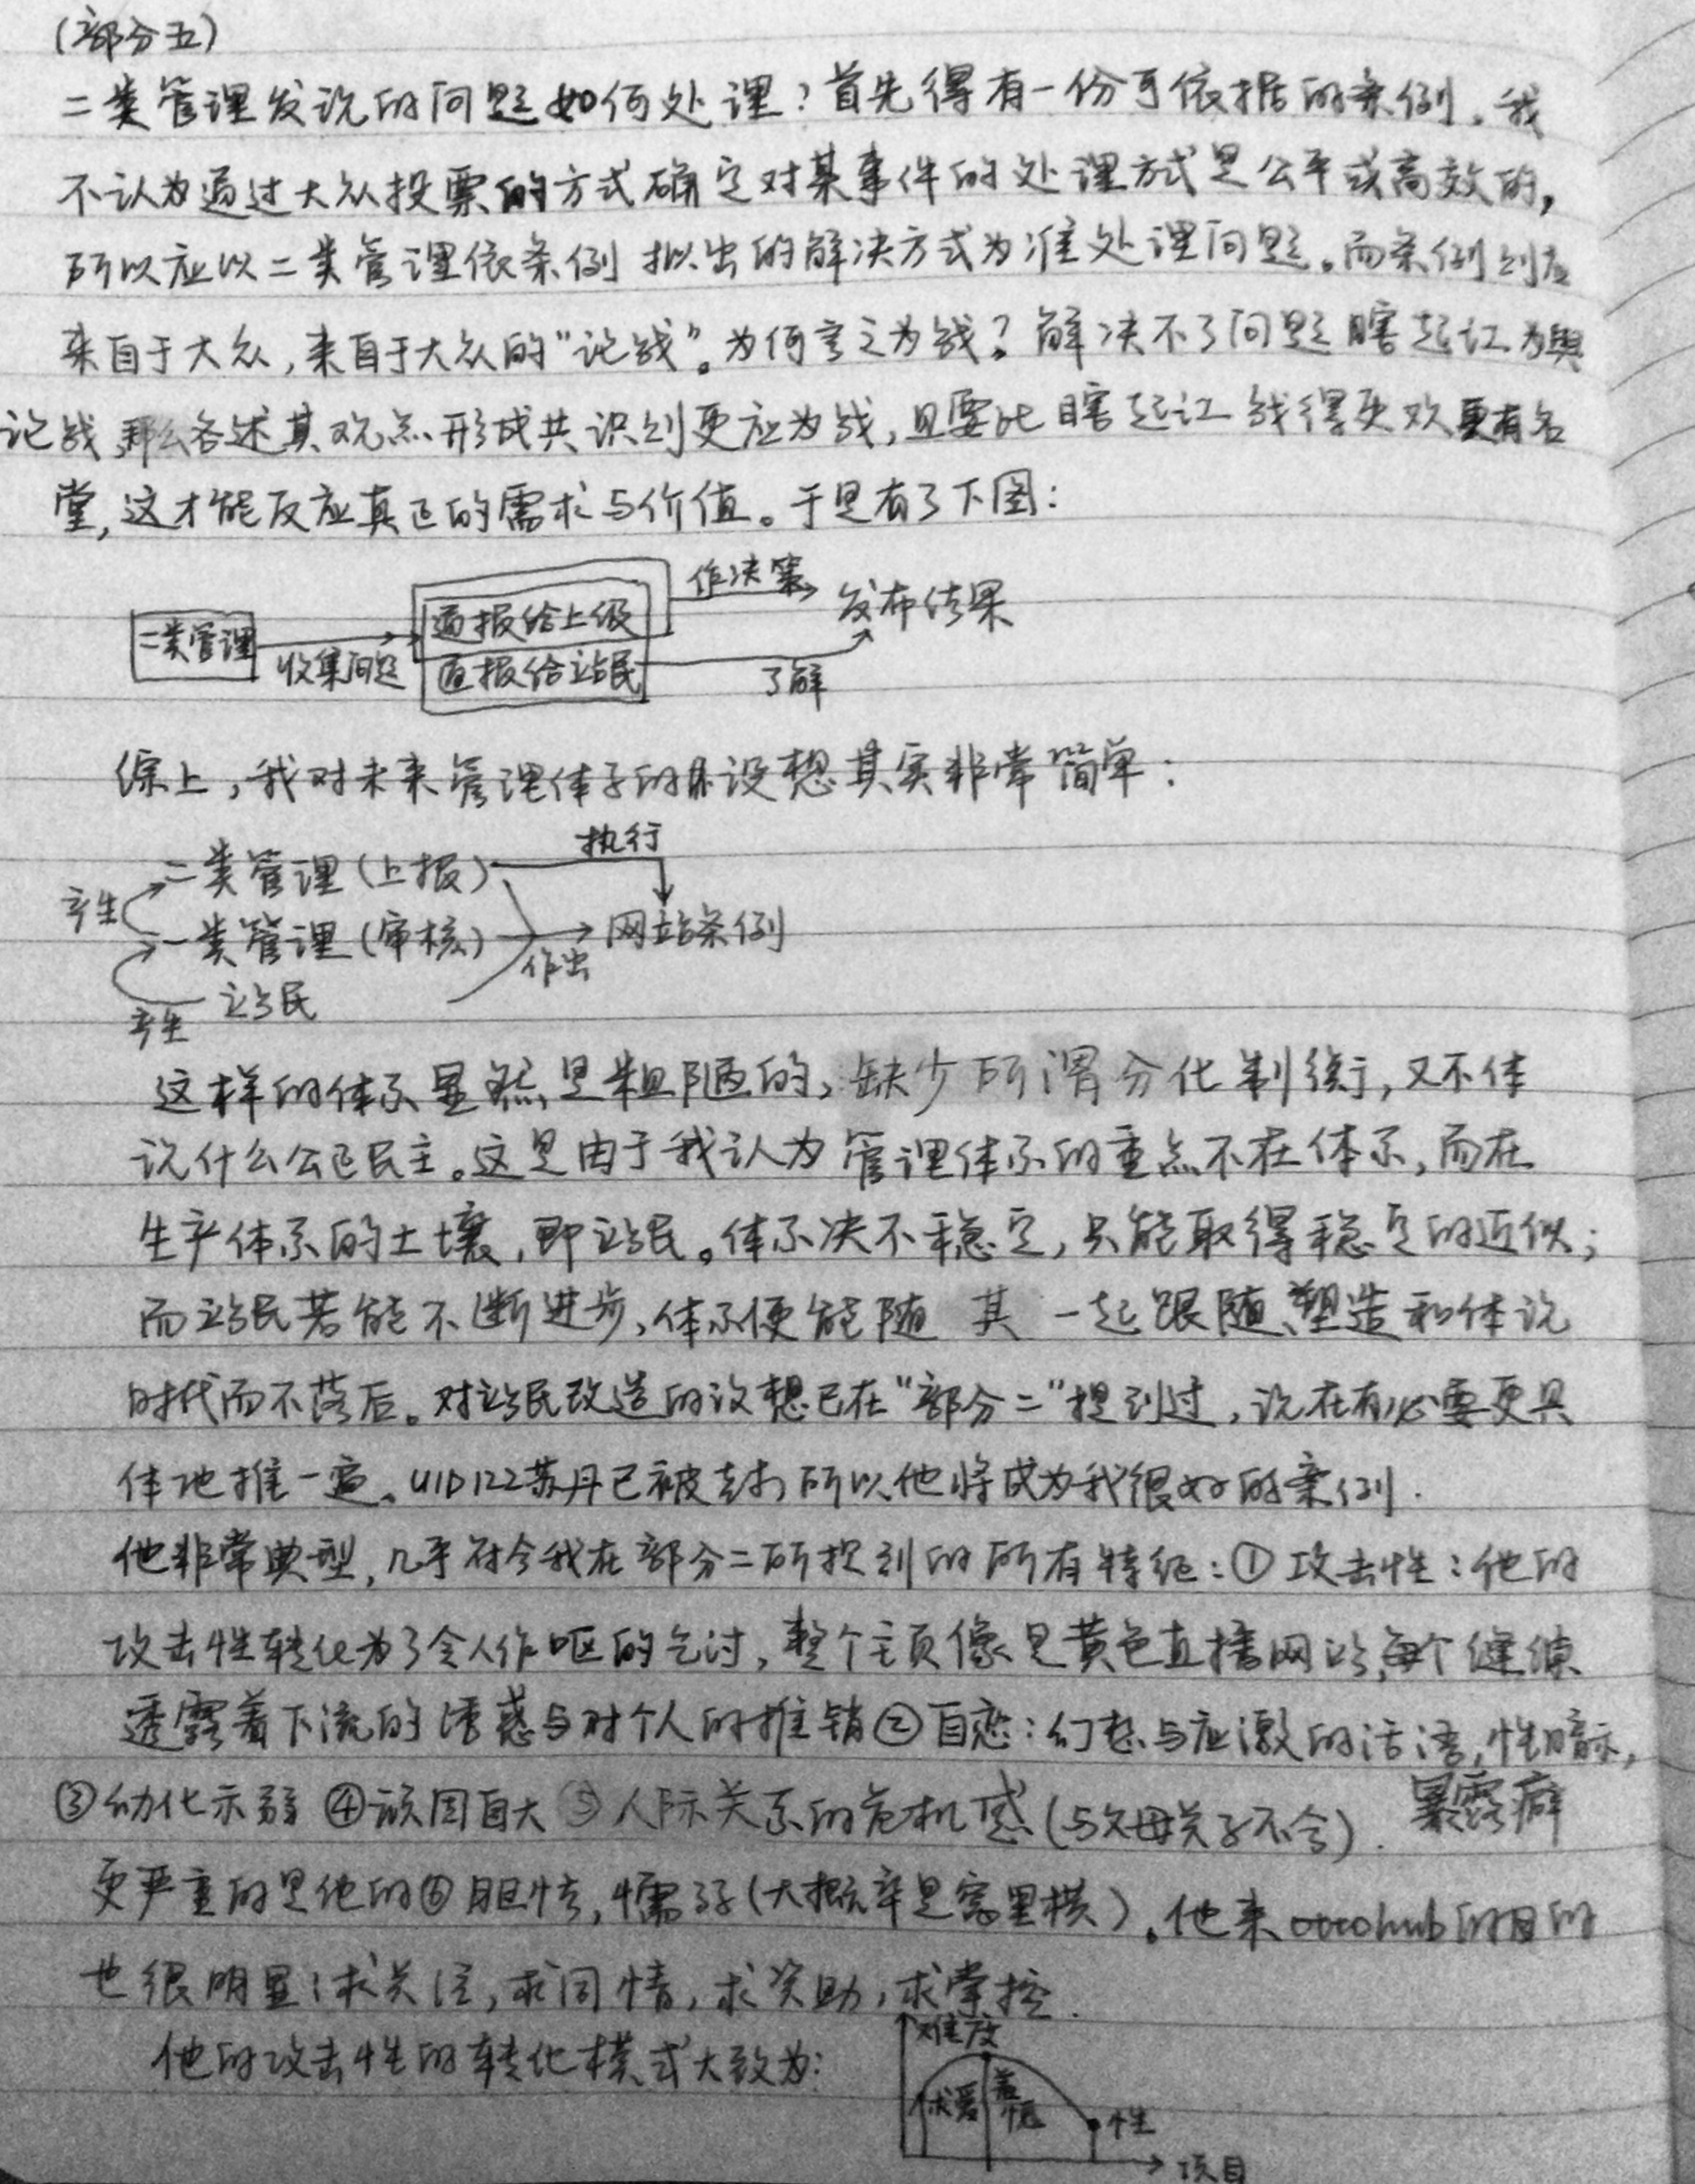 (部分五)
二类管理发说的问题如何处理?首先得有一份可依据的条例。我
不认为通过大众投票的方式确定对某事件的处理方式是公平或高效的,
所以应以二类管理依条例拟出的解决方式为准处理问题。而条例则应
来自于大众,来自于大众的“论战”。为何言之为战?解决不了问题瞎起讧为舆
论战,那么各述其观点形成共识则更应为战,且要比瞎起讧战得更欢更有名
堂,这才能反应真正的需求与价值。于是有了下图:
二类管理
收集问题
通报给上级
通报给站民
作决策
了解
发布结果
综上,我对未来管理体系的设想其实非常简单:
二类管理(上报)
执行
产生
一类管理(审核)
作出
网站条例
站民
产生
这样的体系显然是粗陋的,缺少所谓分化制衡,又不体
说什么公正民主。这是由于我认为管理体系的重点不在体系,而在
生产体系的土壤,即站民。体系决不稳定,只能取得稳定的近似;
而站民若能不断进步,体系便能随其一起跟随、塑造和体说
时代而不落后。对站民改造的设想已在“部分二”提到过,说在有必要更具
体地推一遍。UID122苏丹已被封,所以他将成为我很好的案例.
他非常典型,几乎符合我在部分二所提到的所有特征:①攻击性:他的
攻击性转化为了令人作呕的乞讨,整个主页像是黄色直播网站,每个缝隙
透露着下流的诱惑与对个人的推销②自恋:幻想与应激的话语,性暗示,
暴露癖
③幼化示弱 ④顽固自大 ⑤人际关系的危机感(与父母关系不合).
更严重的是他的⑥胆怯,懦弱(大概率是窝里横)。他来ottohub的目的
也很明显:求关注,求同情,求资助,求掌控.
他的攻击性的转化模式大致为:
难度
求爱
羞愧
性
项目